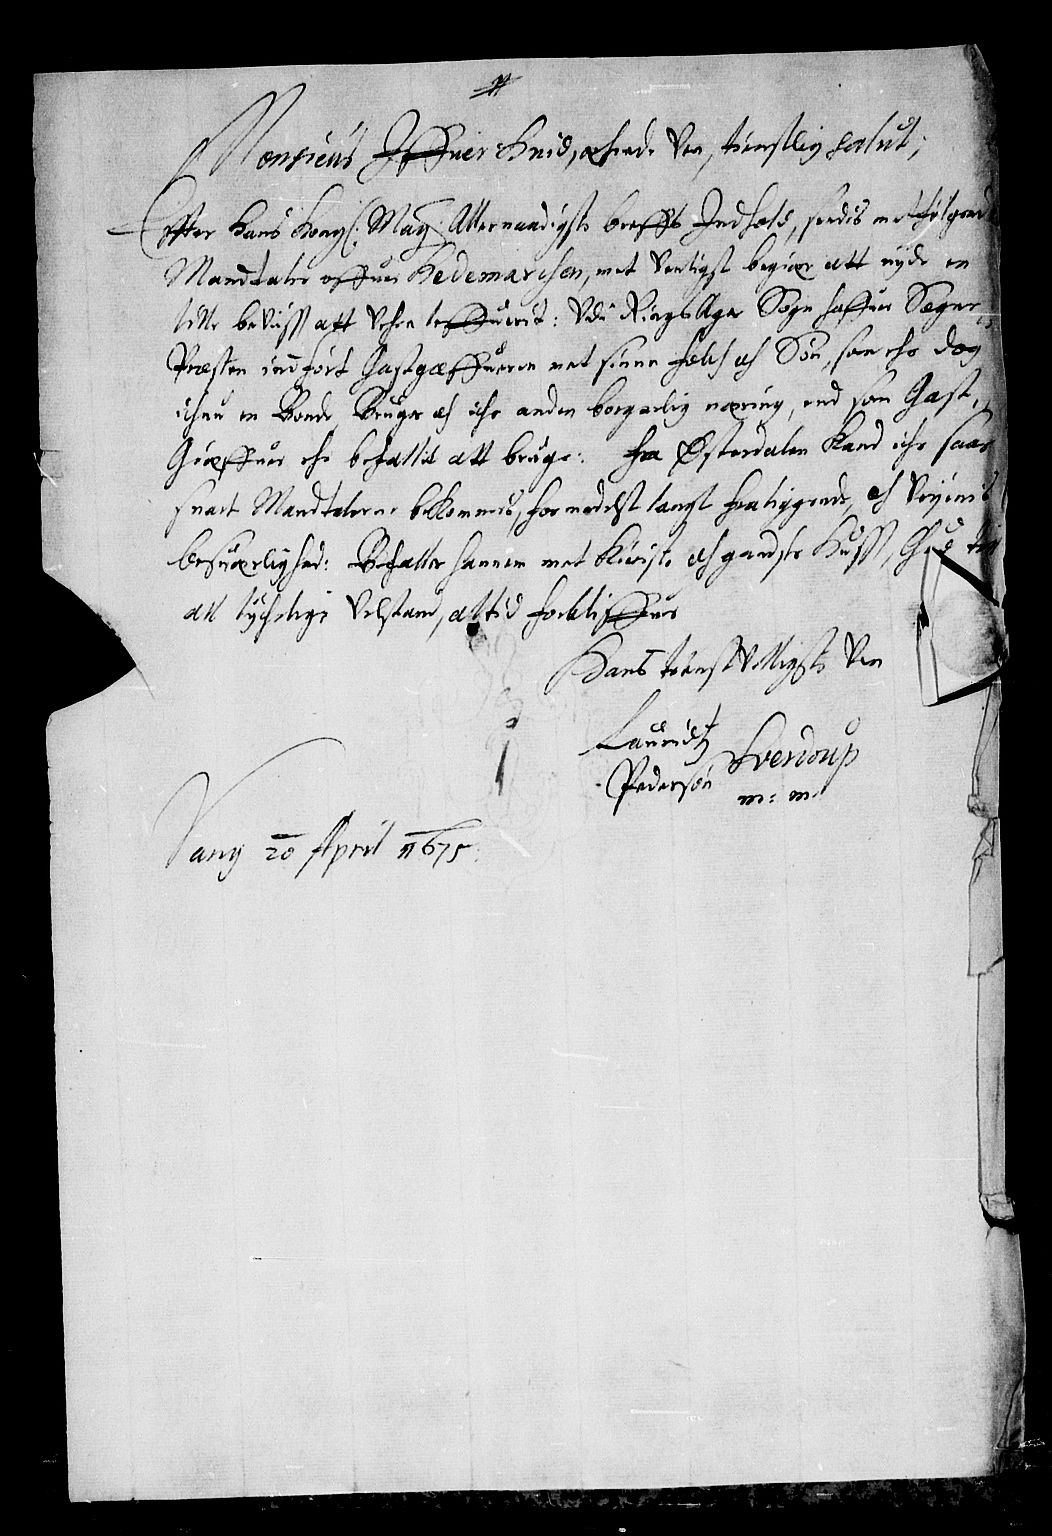 Monsieur Iffuer Huid, ærkiende Ven, tienstlig salut;
Effter Hans Kongl: May: Allernaadigste breffs Indhold, sendis metfølgend
Mandtaler offuer Hedemarchen, met Venligst begiær att nyde en
lille beviss att vehre leffuerit: Udi RingsAger Sogn haffuer Sogne
Præsten indført Gastgæffueren met sinne folch och Søn, som eho dog
ichun en Bonde Bruger och iche anden borgerlig næring, end som Gast
Giæffuer eho befattis att bruge: fra Østerdalen Kand iche saa
snart Mandtalerne bekommes, formedelst langt fraliggende, och Veyenis
besuærlighed: Befaller hannem met Kiæriste och gandske Huss, Gud till
all lychelige Velstand, altid forbliffuer
Hans tienstVilligste Ven
Lauridtz
Pedersøn Sverdrup
m: m.
Vang 20 April 1675: